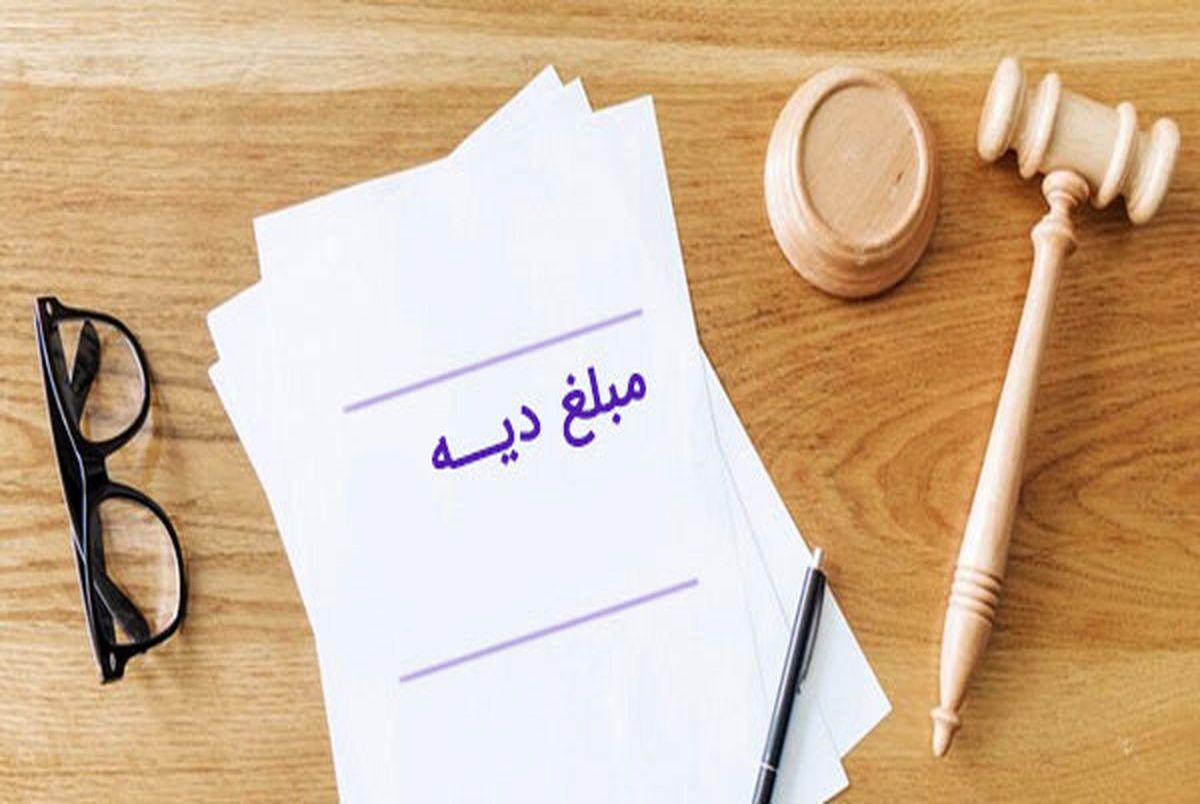 مبلغ دیـــه